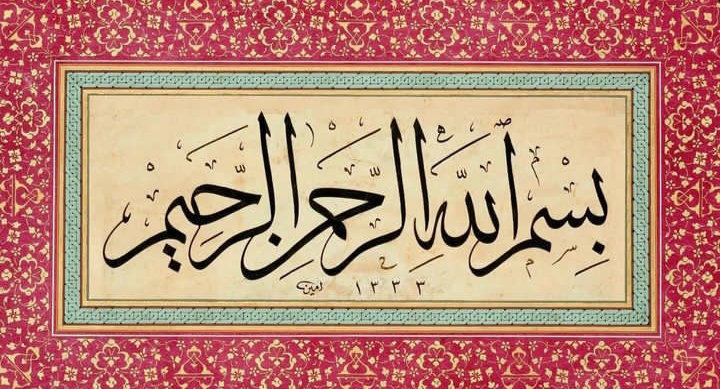 بِسْمِ اللَّهِ الرَّحْمَنِ الرَّحِيمِ
١٣٣٣ امين